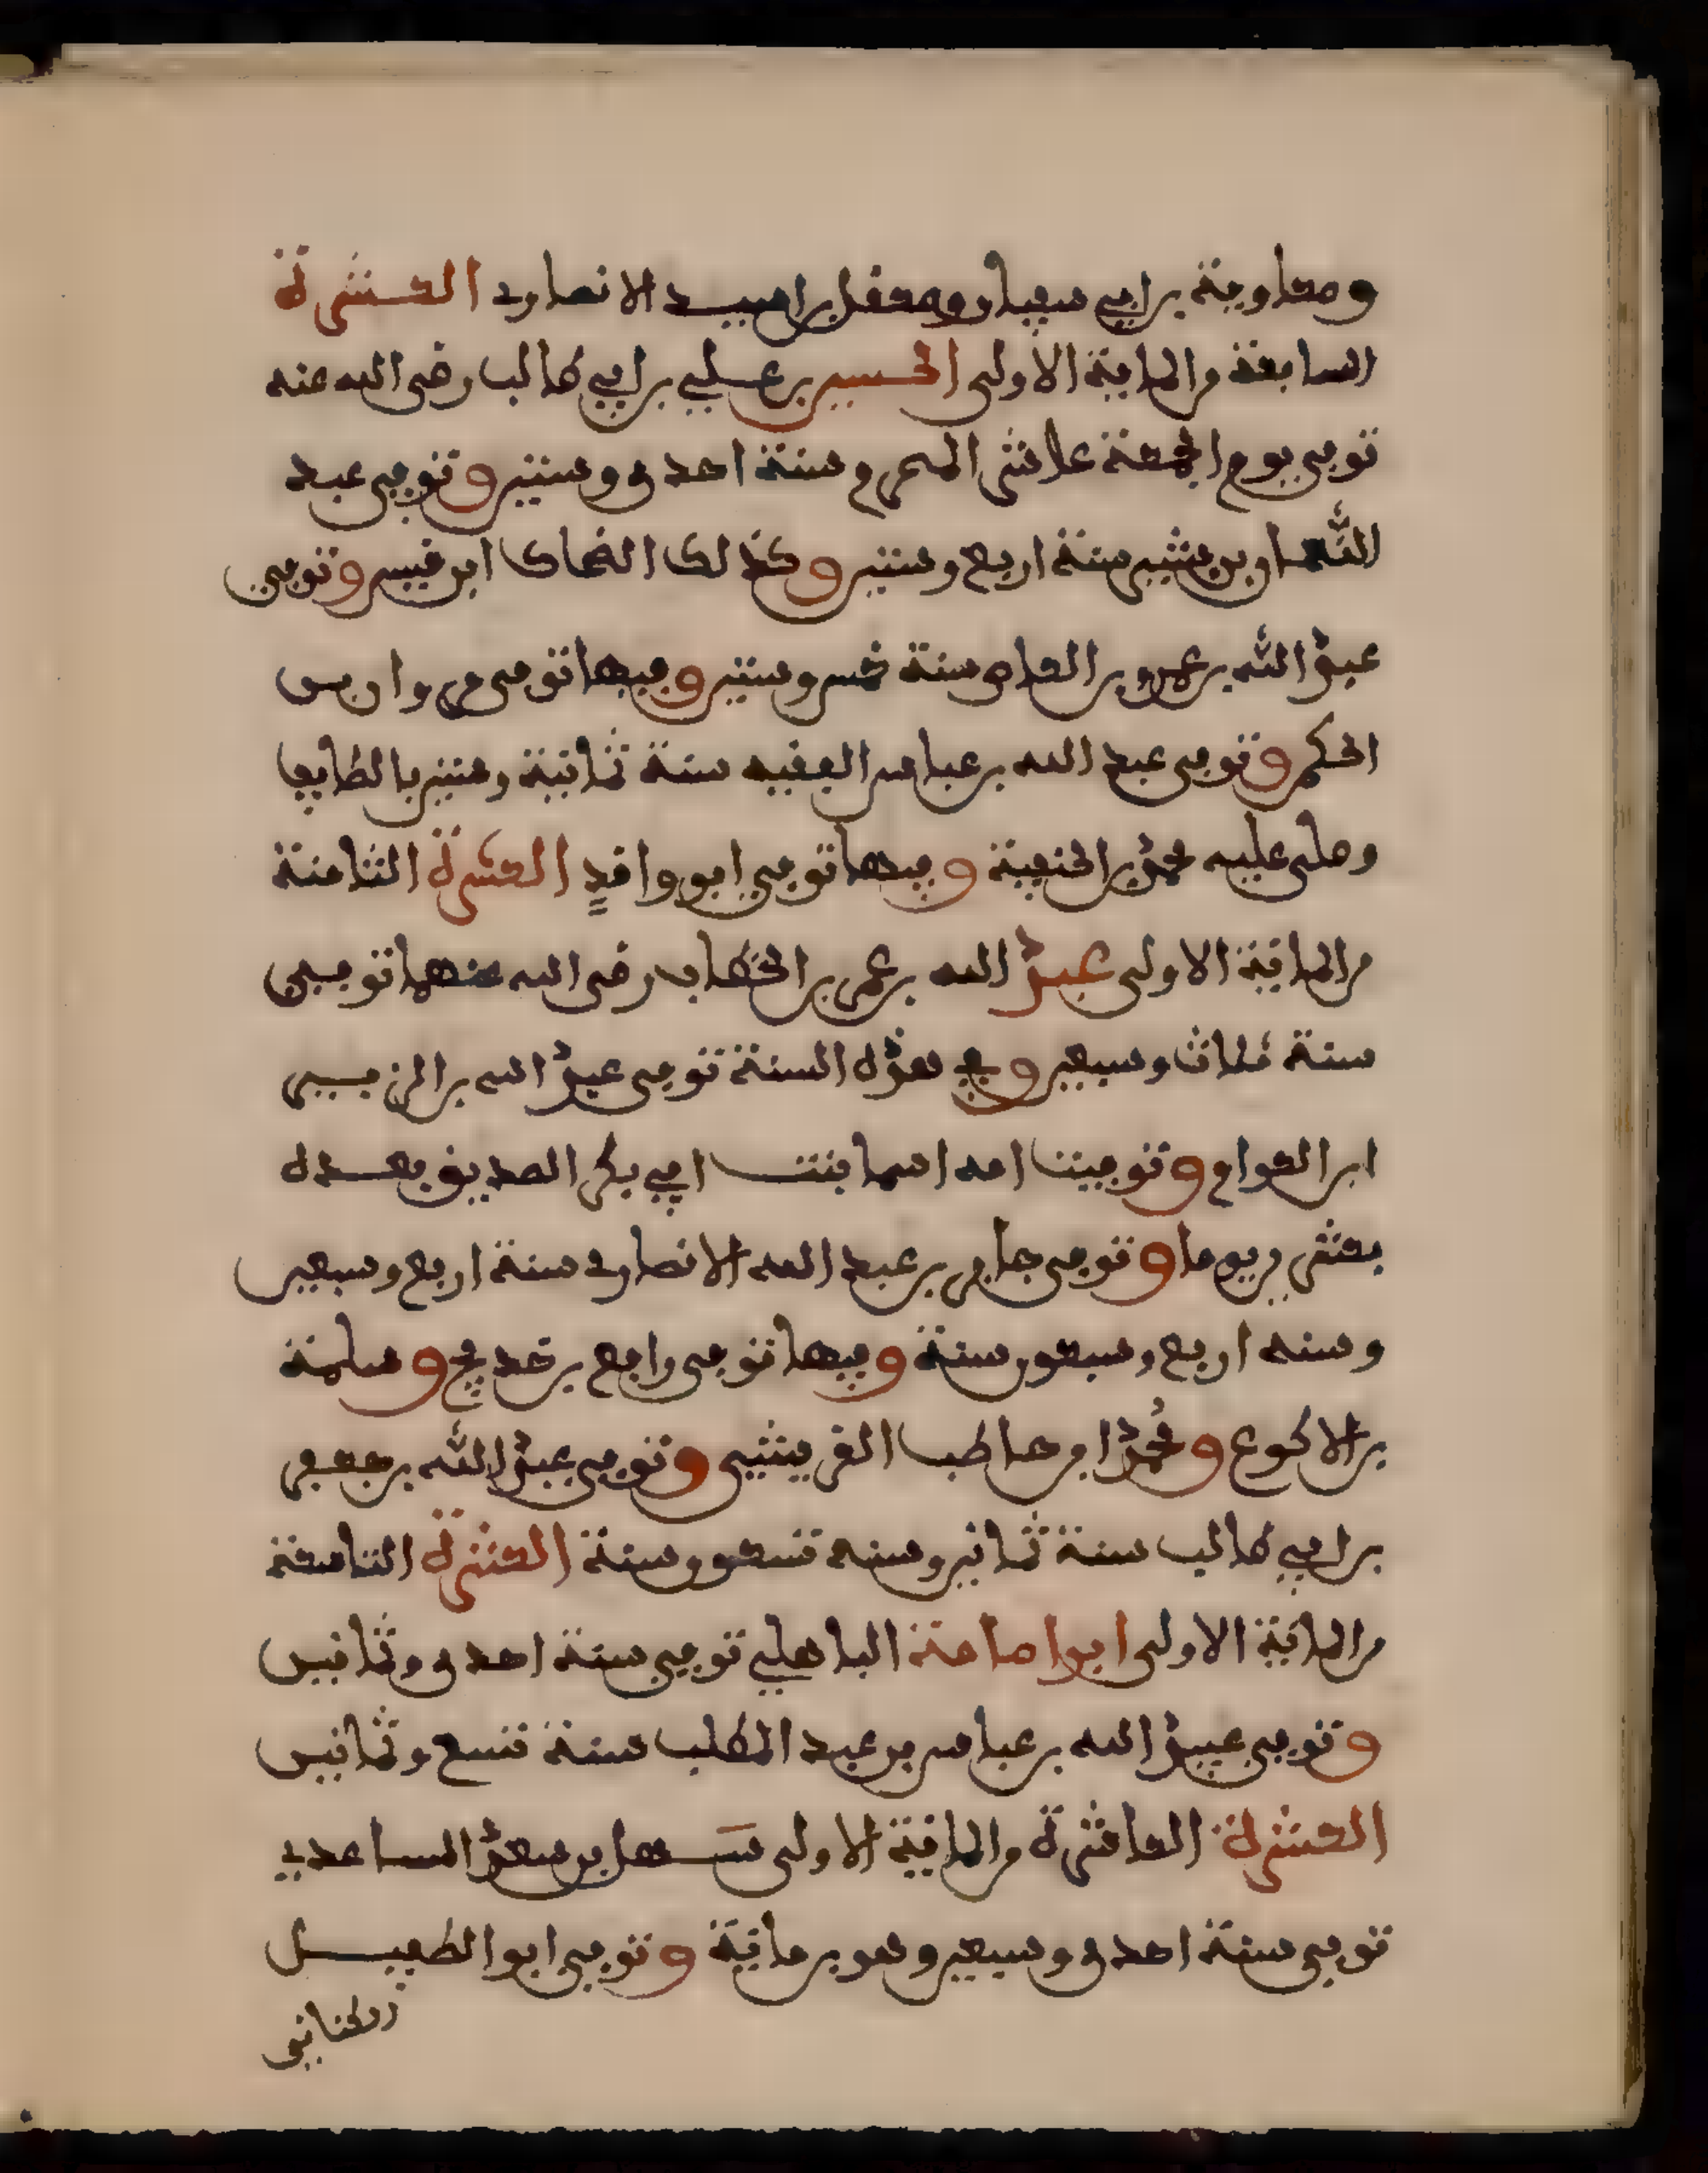 ومعاوية بن ابي سفيان ومعقل بن اسيد الانصاري العشرة
السابعة من الماية الاولى الحسين بن علي بن ابي طالب رضي الله عنه
توفي يوم الجمعة عاشر المحرم سنة احدى وستين وتوفي عبد
النعمان بن بشير سنة اربع وستين وكذلك الضحاك ابن قيس وتوفي
عبد الله بن عمرو بن العاص سنة خمس وستين وفيها توفي مروان بن
الحكم وتوفي عبد الله بن عباس الفقيه سنة ثمانية وستين بالطايف
وصلى عليه محمد بن الحنفية وفيها توفي ابو واقدٍ العشرة الثامنة
من الماية الاولى عبد الله بن عمر بن الخطاب رضي الله عنهما توفي
سنة ثلاث وسبعين وفي هذه السنة توفي عبد الله بن الزبير
ابن العوام وتوفيت امه اسما بنت ابي بكر الصديق بعده
بعشرين يوما وتوفي جابر بن عبد الله الانصاري سنة اربع وسبعين
وسنه اربع وسبعون سنة وفيها توفي رافع بن خديج وسلمة
بن الاكوع ومُحمد ابن حاطب القريشي وتوفي عبد الله بن جعفر
بن ابي طالب سنة ثمانين وسنه تسعون سنة العشرة التاسعة
من الماية الاولى ابو امامة الباهلي توفي سنة احدى وثمانين
وتوفي عبيد الله بن عباس بن عبد المطلب سنة تسع وثمانين
العشرة العاشرة من الماية الاولى سَهل بن سعد الساعدي
توفي سنة احدى وسبعين وهو بن ماية وتوفي ابو الطفيل
الكناني